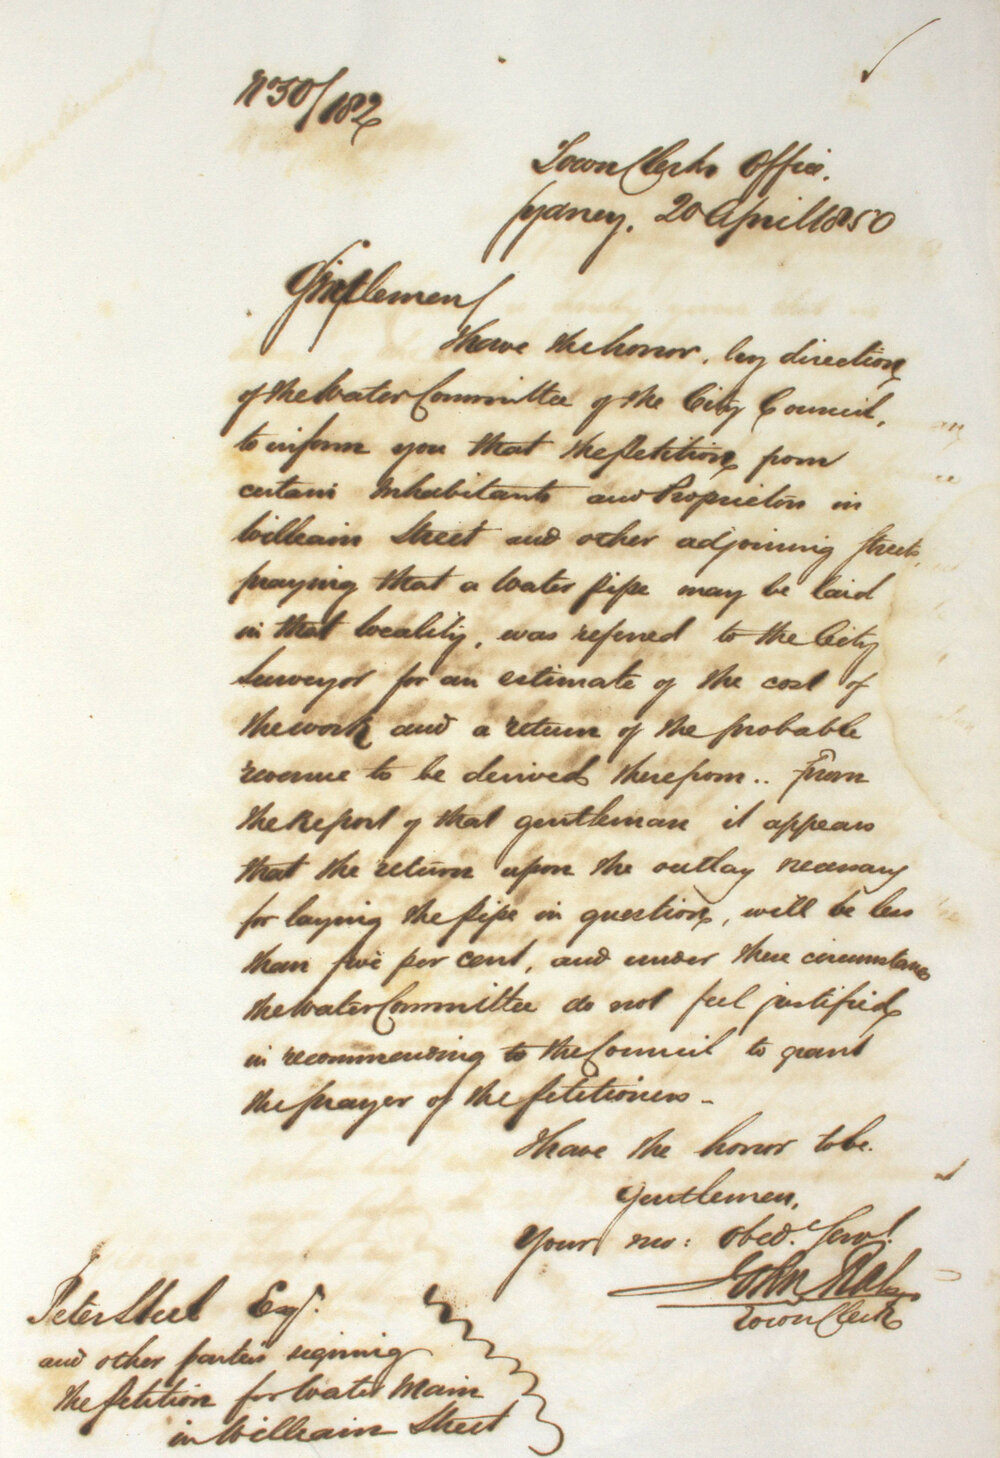 No 50/182
Town Clerks Office.
Sydney, 20 April 1850
Gentlemen
I have the honor, by direction
of the Water Committee of the City Council,
to inform you that the Petition from
certain Inhabitants and Proprietors in
William Street and other adjoining Streets,
praying that a Water pipe may be laid
in that locality, was referred to the City
Surveyor for an estimate of the cost of
the work and a return of the probable
revenue to be derived therefrom.. From
the Report of that gentleman it appears
that the return upon the outlay necessary
for laying the pipe in question, will be less
than five per cent, and under these circumstances
the Water Committee do not feel justified
in recommending to the Council to grant
the prayer of the petitioners -
I have the honor to be.
Gentlemen,
Your mo: obed. Servt.
John
Town Clerk
Peter Steel Esqr.
and other parties signing
the petition for Water Main
in William Street